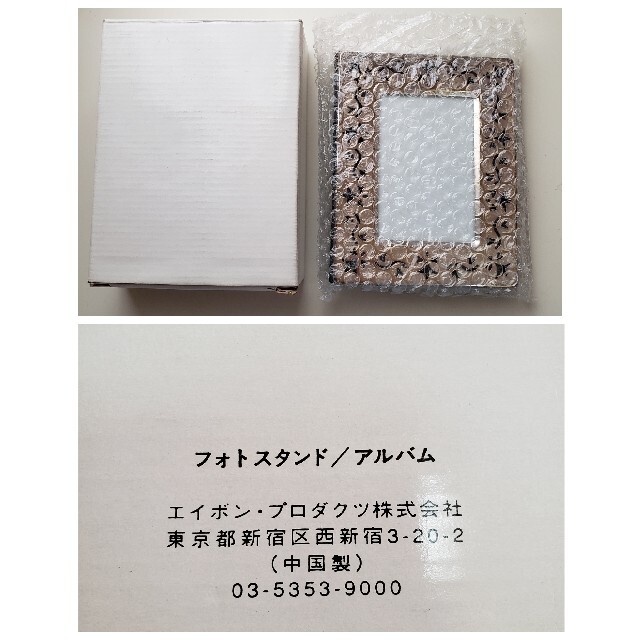 フォトスタンド/アルバム
エイボン・プロダクツ株式会社
東京都新宿区西新宿3-20-2
(中国製)
03-5353-9000